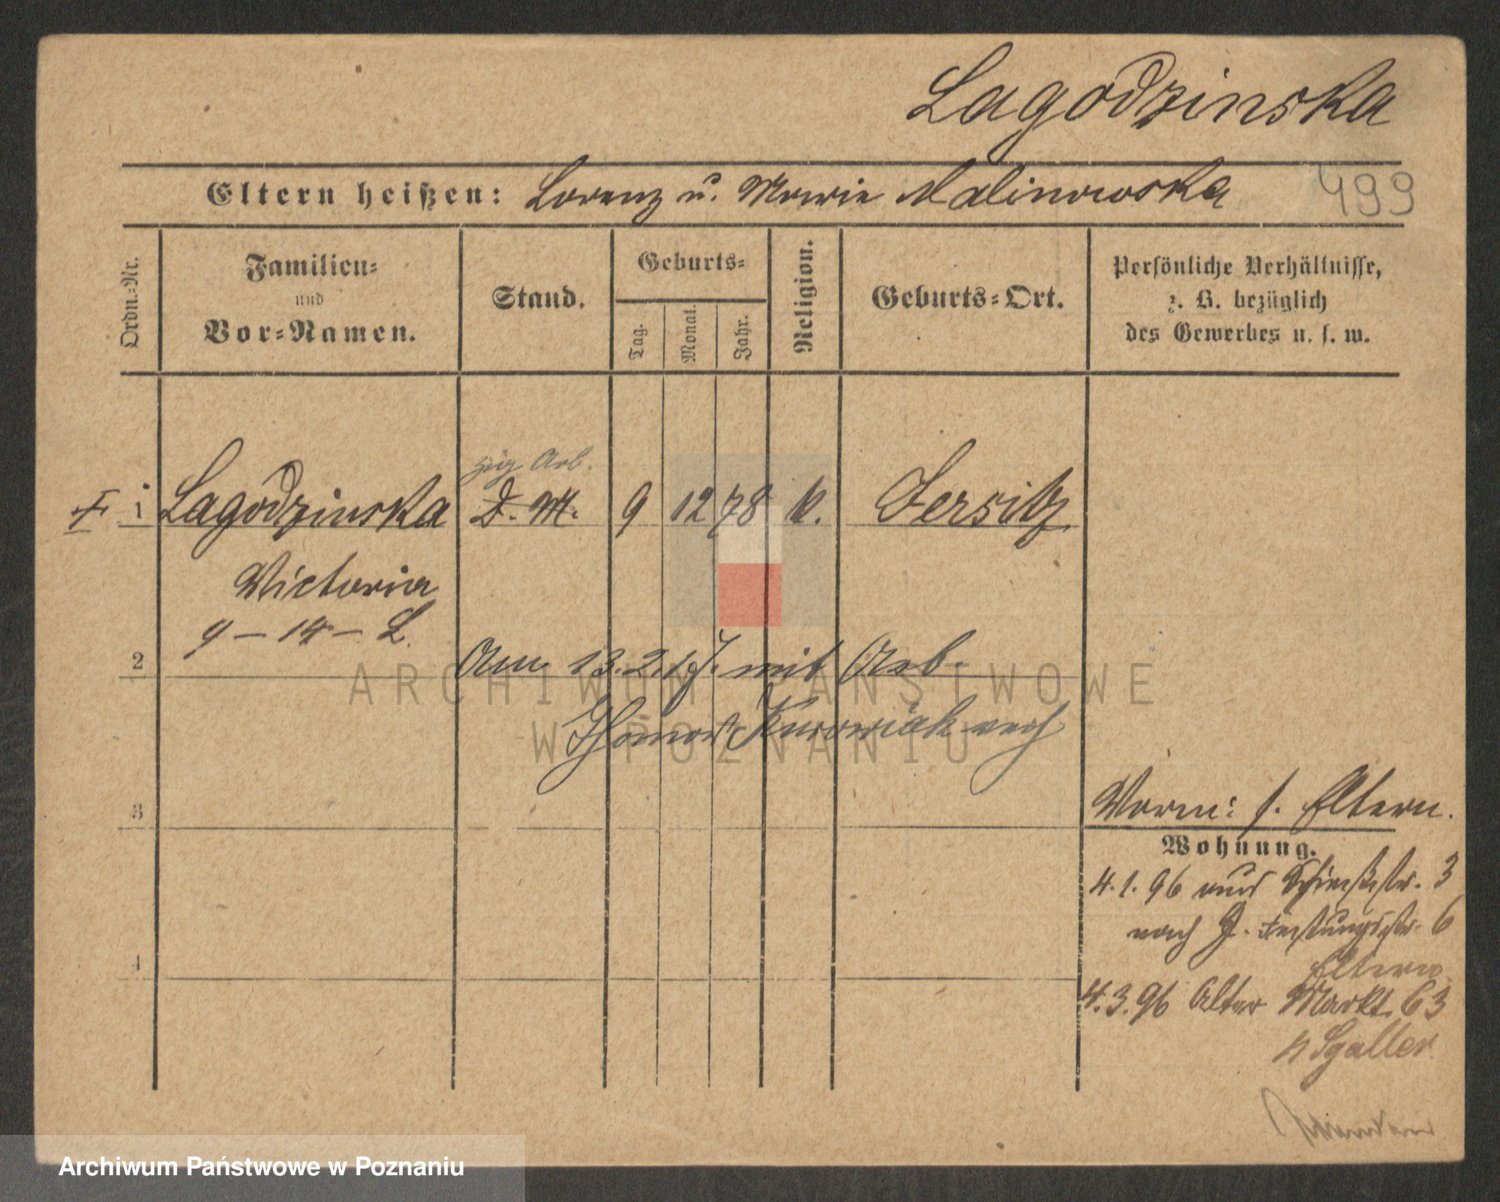 Lagodzinska
Eltern heißen: Lorenz u. Marie Malinowska
499
Ordn.=Nr.
Familien=
und
Vor=Namen.
Stand.
Geburts=
Tag.
Monat.
Jahr.
Religion.
Geburts=Ort.
Persönliche Verhältnisse,
z. B. bezüglich
des Gewerbes u. s. w.
zig Arb.
1 Lagodzinska D. M. 9 12 78 k. Jersitz
Victoria
9 – 14 – L.
2 Am 13.2. mit Arb.
Thomas Kurowiak verh
3
Vorm: s. Eltern.
Wohnung.
4.1.96 aus 3
nach G. Festungsstr. 6
Eltern
4.3.96 Alter Markt 63
b Sgaller
4
ARCHIWUM PAŃSTWOWE
W POZNANIU
Archiwum Państwowe w Poznaniu